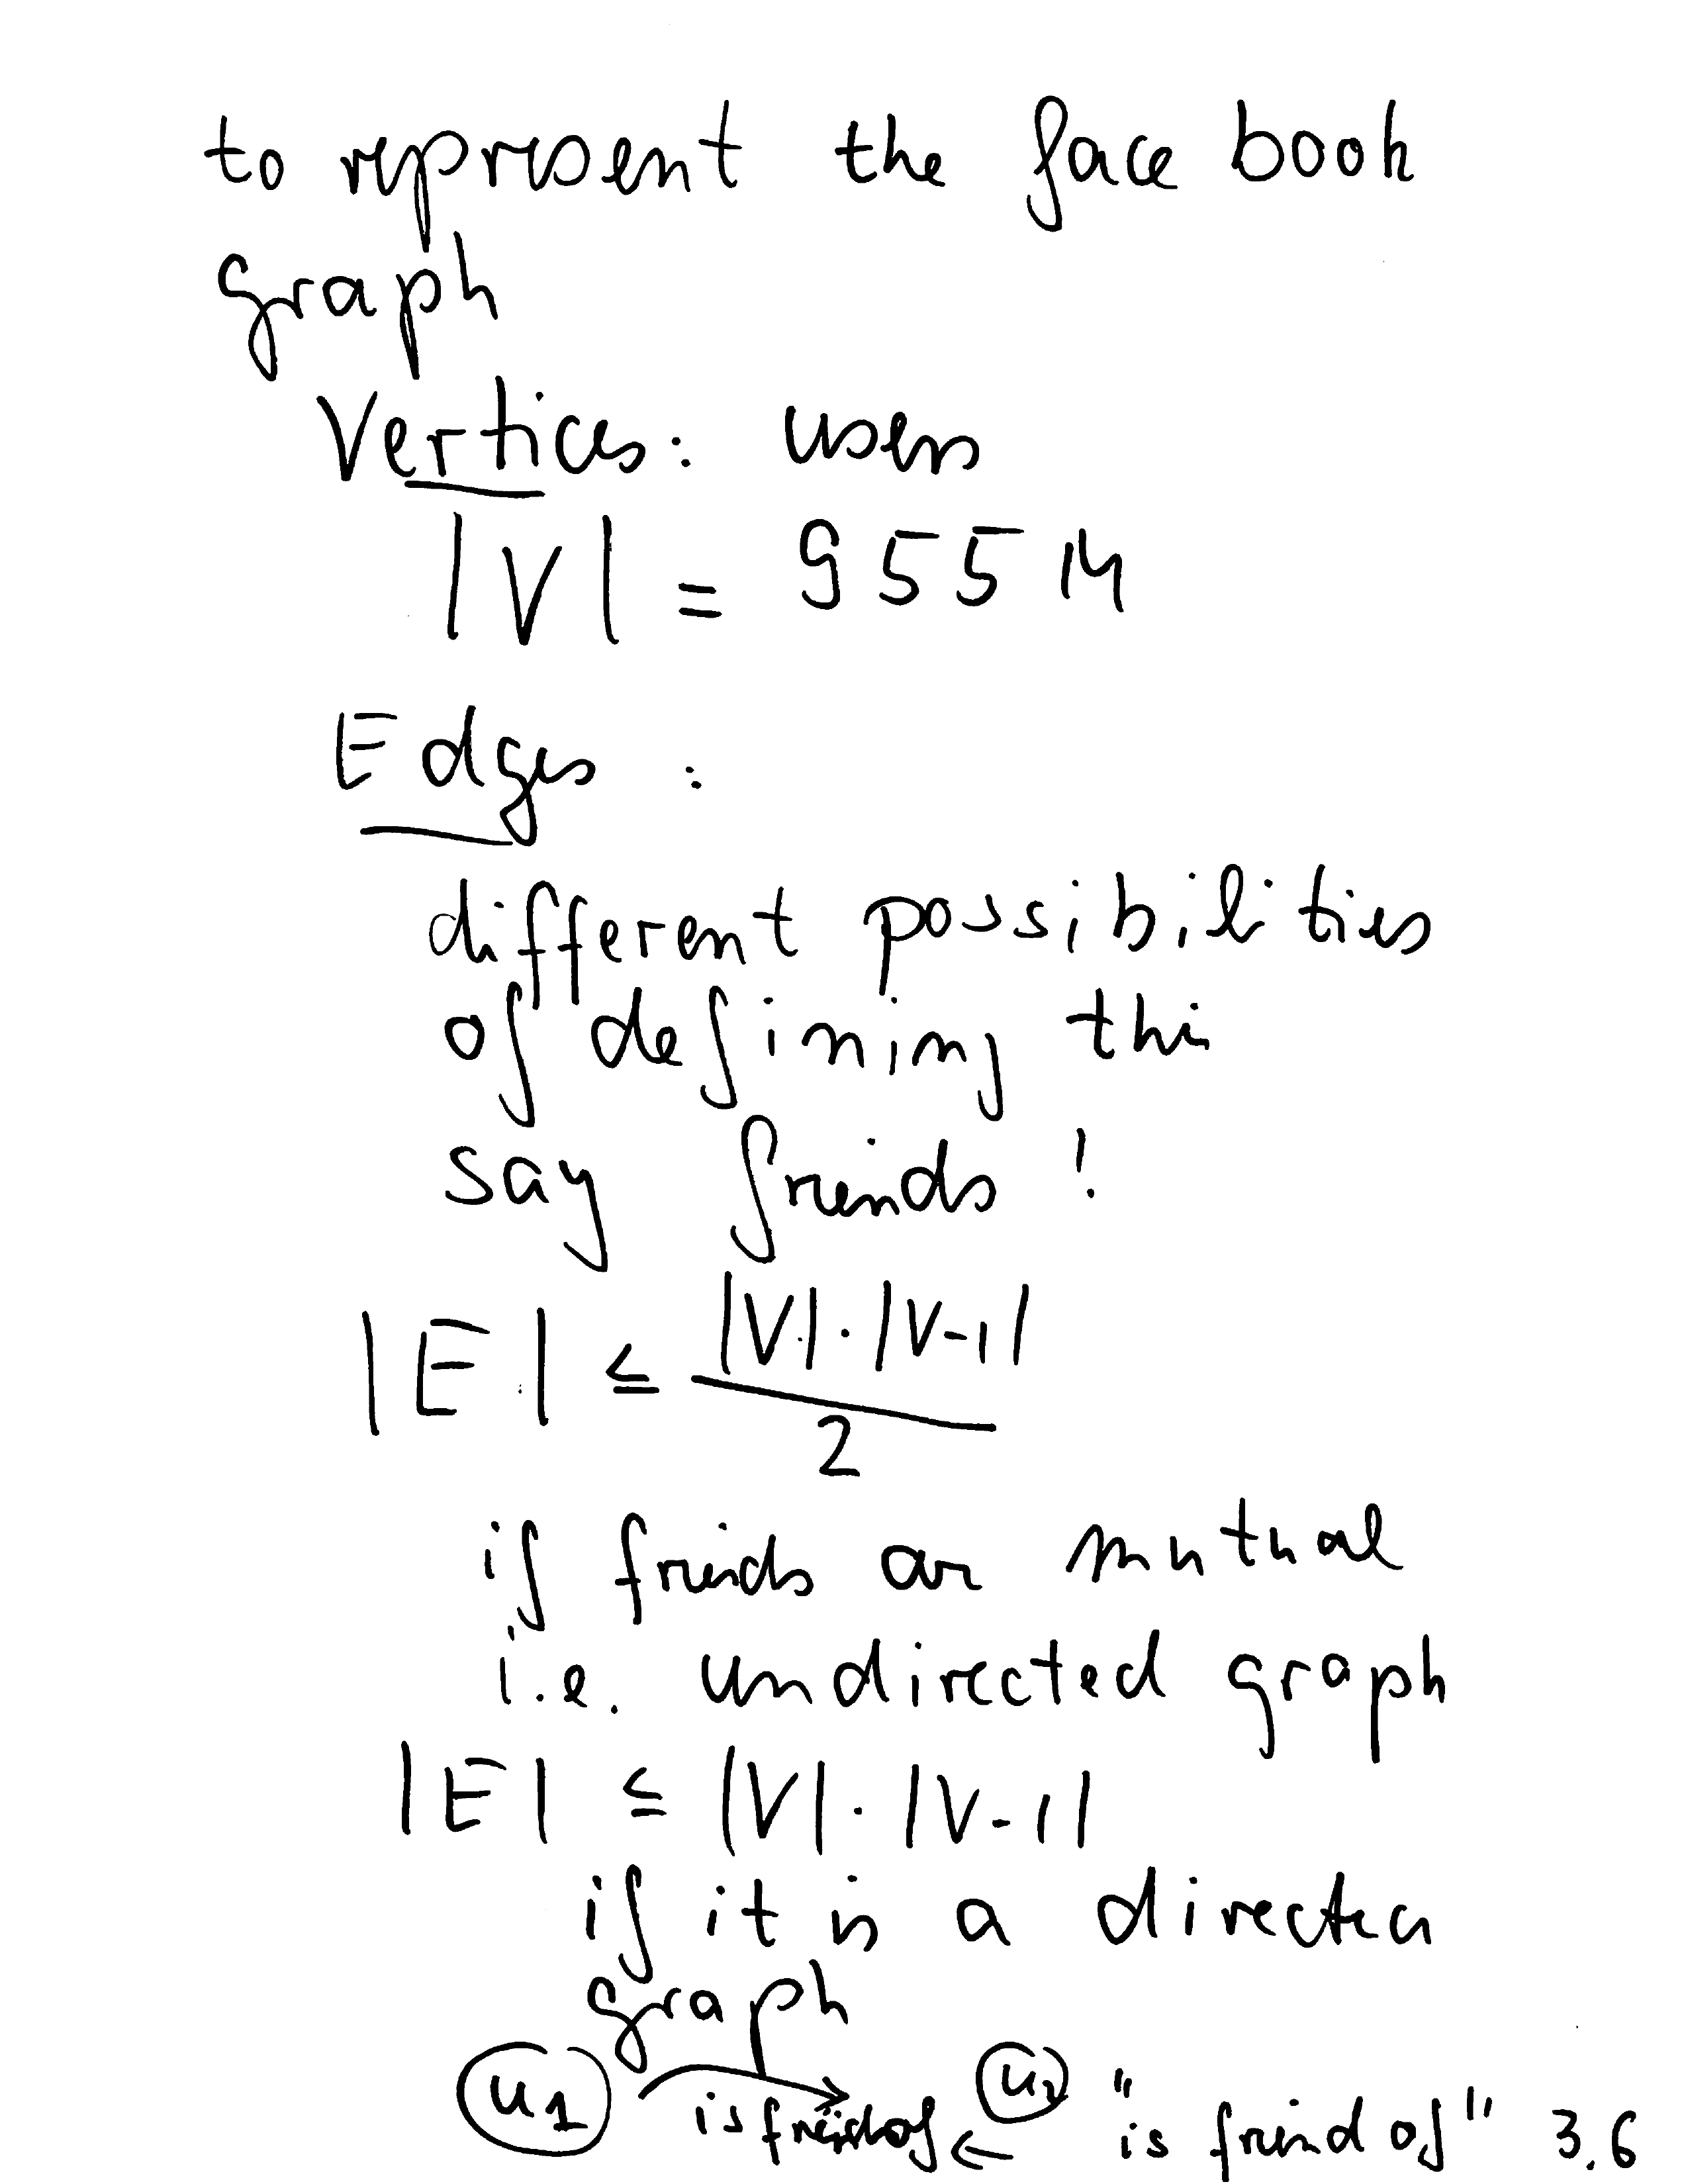 to represent the face book
graph
Vertices: users
|V| = 955 M
Edges :
different possibilities
of defining this
say friends !
|E| ≤ |V|·|V-1|
2
if friends are mutual
i.e. undirected graph
|E| ≤ |V|·|V-1|
if it is a directed
graph
u1 is friend of ← u2 "is friend of" 3.6